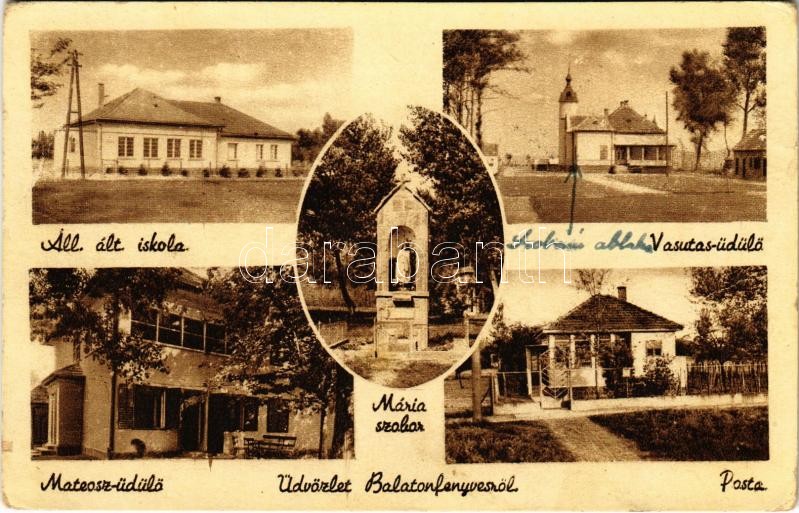 Áll. ált. iskola.
Szobám ablaka
Vasutas-üdülő
darabanth
Mária
szobor
Mateosz-üdülő
Üdvözlet Balatonfenyvesről.
Posta.